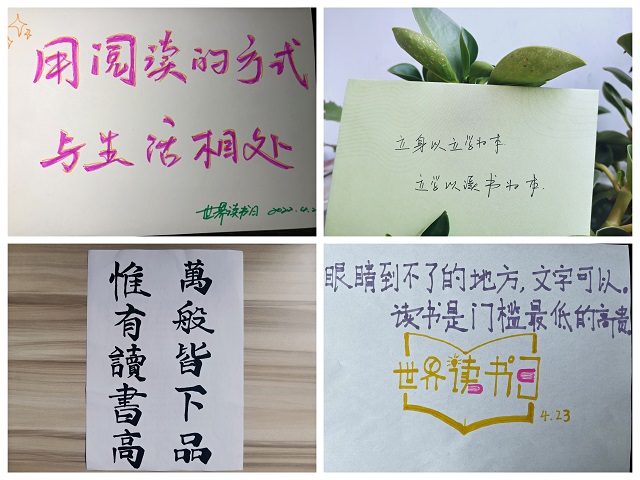 用阅读的方式
与生活相处
世界读书日
立身以立学为本
立学以读书为本
萬般皆下品
惟有讀書高
眼睛到不了的地方,文字可以。
读书是门槛最低的高贵。
世界读书日
4.23